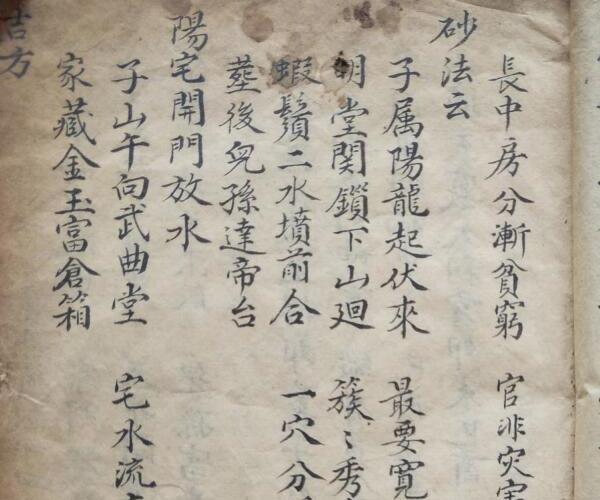 長中房分漸貧窮 官非灾害
砂法云
子属陽龍起伏來 最要寬
明堂関鎖下山廻 簇〻秀
蝦鬚二水墳前合 一穴分
塟後兒孫達帝台
陽宅開門放水
子山午向武曲堂 宅水流
家藏金玉富倉箱
吉方